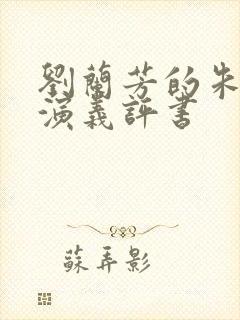 劉蘭芳的朱
演義評書
蘇弄影